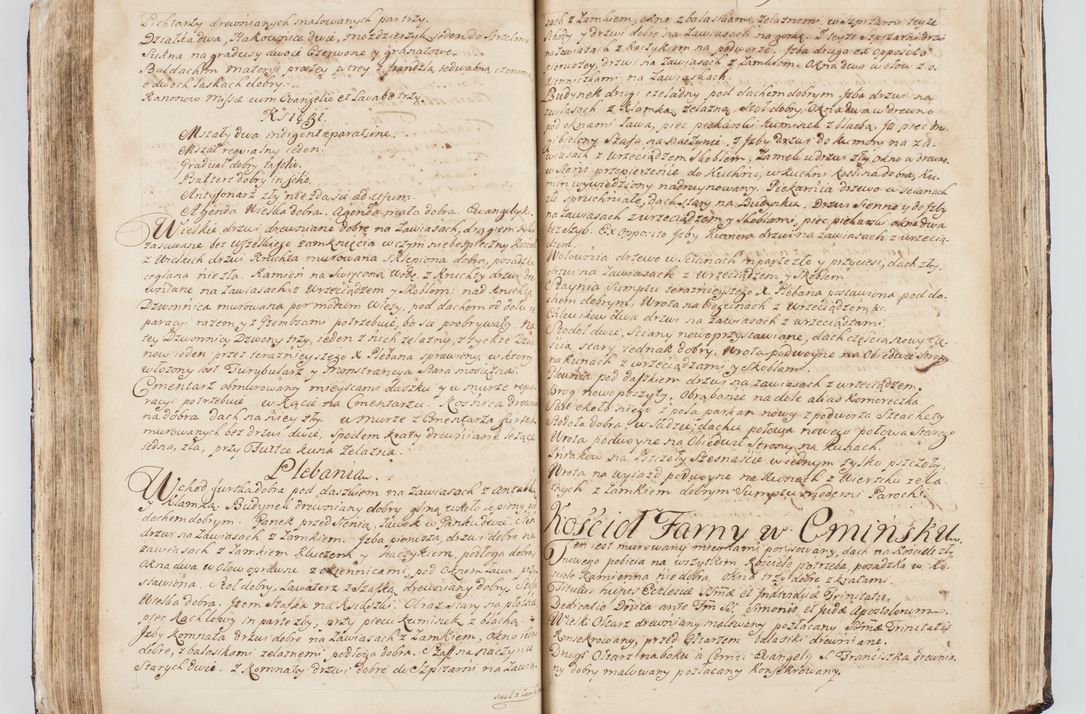 Lichtarzy drewnianych malowanych par trzy.
Baldachim materyi prostey pstrey z frandzlą jedwabną czerwoną
o dwoch laskach dobry.
Kanonow Missæ cum Evangelio et Lavabo trzy.
Księgi.
Mszały dwa indigent reparatione.
Mszał requialny ieden.
Graduał dobry in folio.
Psałterz dobry in folio.
Antyfonarz zły nie zda się ad usum.
Agenda Wielka dobra. Agenda mała dobra. Ewangelyk.
Wielkie drzwi drewniane dobre na zawiasach, drągiem
zasuwane bez wszelkiego zamknięcia w czym niebespieczny Kościoł
z Wielkich drzwi Kruchta murowana sklepiona dobra, posadzka
ceglana nie zła. Kamień na Swięconą Wodę z Kruchty drzwi
wniane na zawiasach z wrzeciądzem y skoblem: nad Kruchtą
Dzwonnica murowana per modum Wieży, pod dachem od dołu re
paracyi razem y z Gzembsami potrzebuie, bo się poobrywały na
tey Dzwonnicy Dzwony trzy, ieden z nich zelazny, z tychze Dzwo
now ieden przez teraznieyszego X Plebana sprawiony, w ktory
włozony iest Turybularz y Monstrancya stara mosiężna.
Cmentarz obmurowany mieyscami daszku y w murze repa
racyi potrzebuie. w Kącie na Cmentarzu Kostnica drewnia
na dobra dach na niey zły. w murze z Cmentarza furtek
murowanych bez drzwi dwie, spodem kraty drewniane lezące
iedna, zła, przy Furtce kuna zelazna.
Plebania.
Wchod furtka dobra pod daszkiem na zawiasach z antabą
y klamką. Budynek drewniany dobry gliną wkoło lepiony pod
dachem dobrym. Ganek przed Sienią, ławek w Ganku dwie. Sień
drzwi na zawiasach z zamkiem. Izba pierwsza, drzwi dobre na
zawiasach z zamkiem kluczem y haczykiem, podłoga dobra,
Okna dwa w ołow oprawne z okiennicami, pod Oknem Ława przy
stawiona. Stoł dobry, Lawaterz z szafką drewniany dobry, Szafa
Wielka dobra. Item Szafka na Kieliszki. Obraz stary na płotnie
piec kachlowy in parte zły, przy piecu kuminek z blachą. z
Izby komnata drzwi dobre na zawiasach z zamkiem, okno iedno
dobre, z balaskami zelaznemi, podłoga dobra. Szaff na naczynie
starych dwie. z komnaty drzwi dobre do Szpizarni na zawia-
sach z zamk
sach z zamkiem, okno z balaskami zelaznemi. w Szpizarni teyze
Schody y drzwi dobre na zawiasach na gorę. z teyze Szpizarni drzwi
na zawiasach z haczykiem na podworze. Izba druga ex opposito
pierwszey, drzwi na zawiasach z zamkiem. Okna dwa w ołow z o-
kienniczkami na zawiasach.
Budynek drugi czeladny pod dachem dobrym Izba drzwi na
zawiasach z klamką zelazną, Stoł dobry, Okna dwa w drewno
pod oknami ława, piec piekarski kuminek z blachą. Item piec dru
gi bielony Szafa na naczynie. z Izby drzwi do komory na za
wiasach z wrzeciądzem skoblem, zamek u drzwi zły okno w drewno.
w Sieni przepierzenie do kuchni, w kuchni Kotlina dobra, ku-
min wywiedziony nadruynowany. Piekarnia drzewo w scianach
złe spruchniałe, dach stary na Budynku. Drzwi Sienne y do Izby
na zawiasach z wrzeciądzem y skoblami, piec piekarski okna dwa
bez szyb. Ex opposito Izby komora drzwi na zawiasach z wrzecią-
dzem.
Wozownia drzewo w scianach in parte złe y przyciesi, dach zły,
drzwi na zawiasach z wrzeciądzem y skoblem.
Staynia Sumptu teraznieyszego X. Plebana postawiona, pod da-
chem dobrym. Wrota na biegunach z wrzeciądzem &c.
Chlewikow dwa drzwi na zawiasach z wrzeciądzami.
Stodoł dwie, Sciany nowo przystawiane, dach częscią nowy czę-
scią stary iednak dobry. Wrota podwoyne na Obiedwie strony
na kunach z wrzeciądzami y skoblami.
Plewnia pod daszkiem drzwi na zawiasach z wrzeciądzem.
Brog nowo poszyty. Obrąbanie na dole alias komoreczka.
Sad około niego z pola parkan nowy z podworza sztachety
Stodoła dobra w Sadzie; dachu połowa nowego połowa starego
Wrota podwoyne na Obiedwie strony na kunach.
Pniakow na Pszczoły szesnascie w iednym tylko pszczoły.
Wrota na wyiazd podwoyne na kunach z Wierzchu zela
znych z zamkiem dobrym Sumptu moderni Parochi.
Kościoł Farny w Cmińsku.
Ten iest murowany mieyscami porysowany, dach na Kosciele zły
nowego pobicia na wszystkim Kościele potrzeba, posadzka w Ko
sciele kamienna nie dobra, okna trzy dobre z kratami.
Titulus hujus Ecclesiæ SSmæ et Individuæ Trinitatis,
Dedicatio Dnica ante Fm SS. Simonis et Judæ Apostolorum.
Wielki Ołtarz drewniany malowany pozłacany SSmæ Trinitatis
konsekrowany, przed Ołtarzem balaski drewniane.
Drugi Ołtarz na boku a Cornu Evangelij S. Franciszka drewnia-
ny dobry malowany pozłacany konsekrowany.